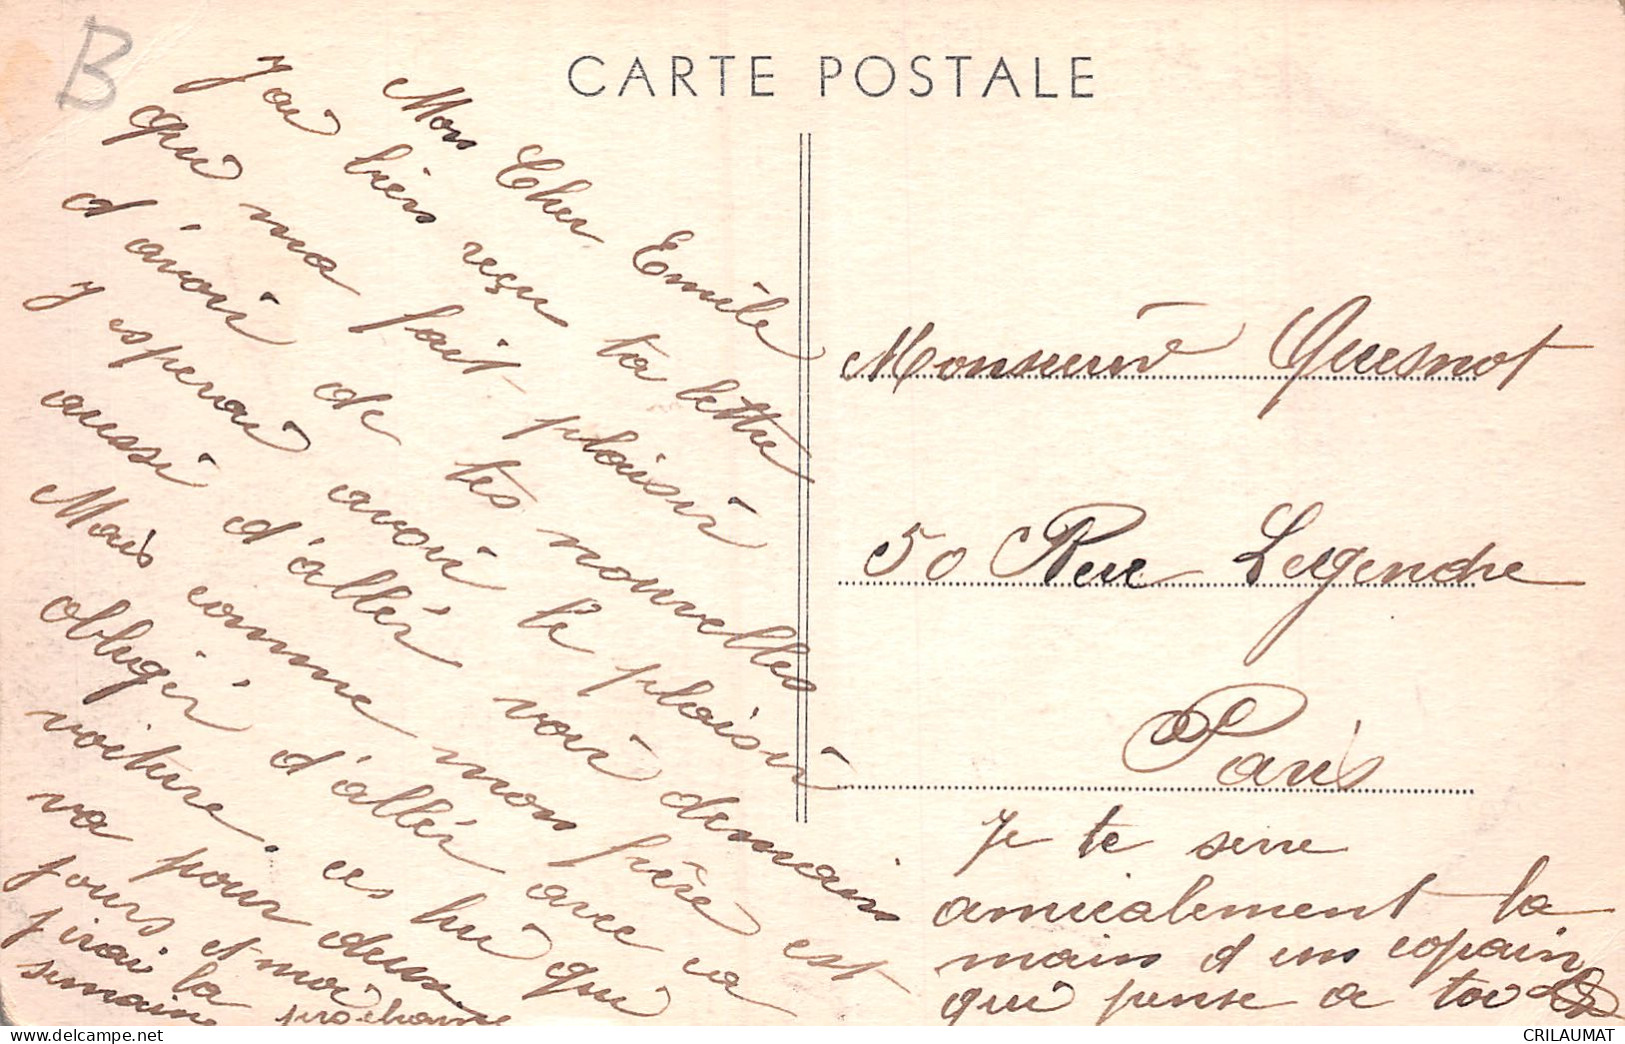 B
CARTE POSTALE
Mon Cher Emile
J'ai bien reçu ta lettre
qui ma fait plaisir
d'avoir de tes nouvelles
J esperai avoir le plaisir
aussi d'allér voir demain
Mais comme mon frère est
obligér d'allér avec sa
voiture. ces lui qui
va pour deux
jours et moi
j'irai la
semaine prochaine
Monsieur Quesnot
50 Rue Legendre
Paris
Je te serre
amicalement la
main d un copain
qui pense a toi
CRILAUMAT